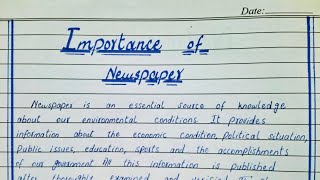 Date:
Importance of
Newspaper
Newspaper is an essential source of knowledge
about our environmental conditions. It provides
information about the economic condition, political situation,
public issues, education, sports and the accomplishments
of our government. All this information is published
after thoroughly examined and verified